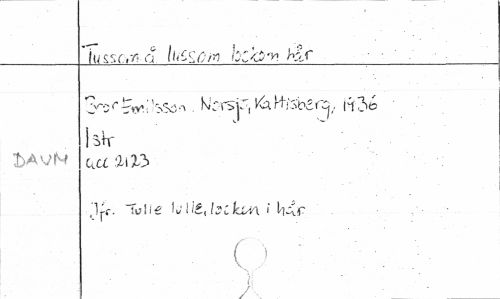 Tussom å lussom lockom hår
Bror Emilsson. Norsjö, Kattisberg, 1936
1 str
DAUM acc 2123
Jfr. Tulle lulle, locken i hår